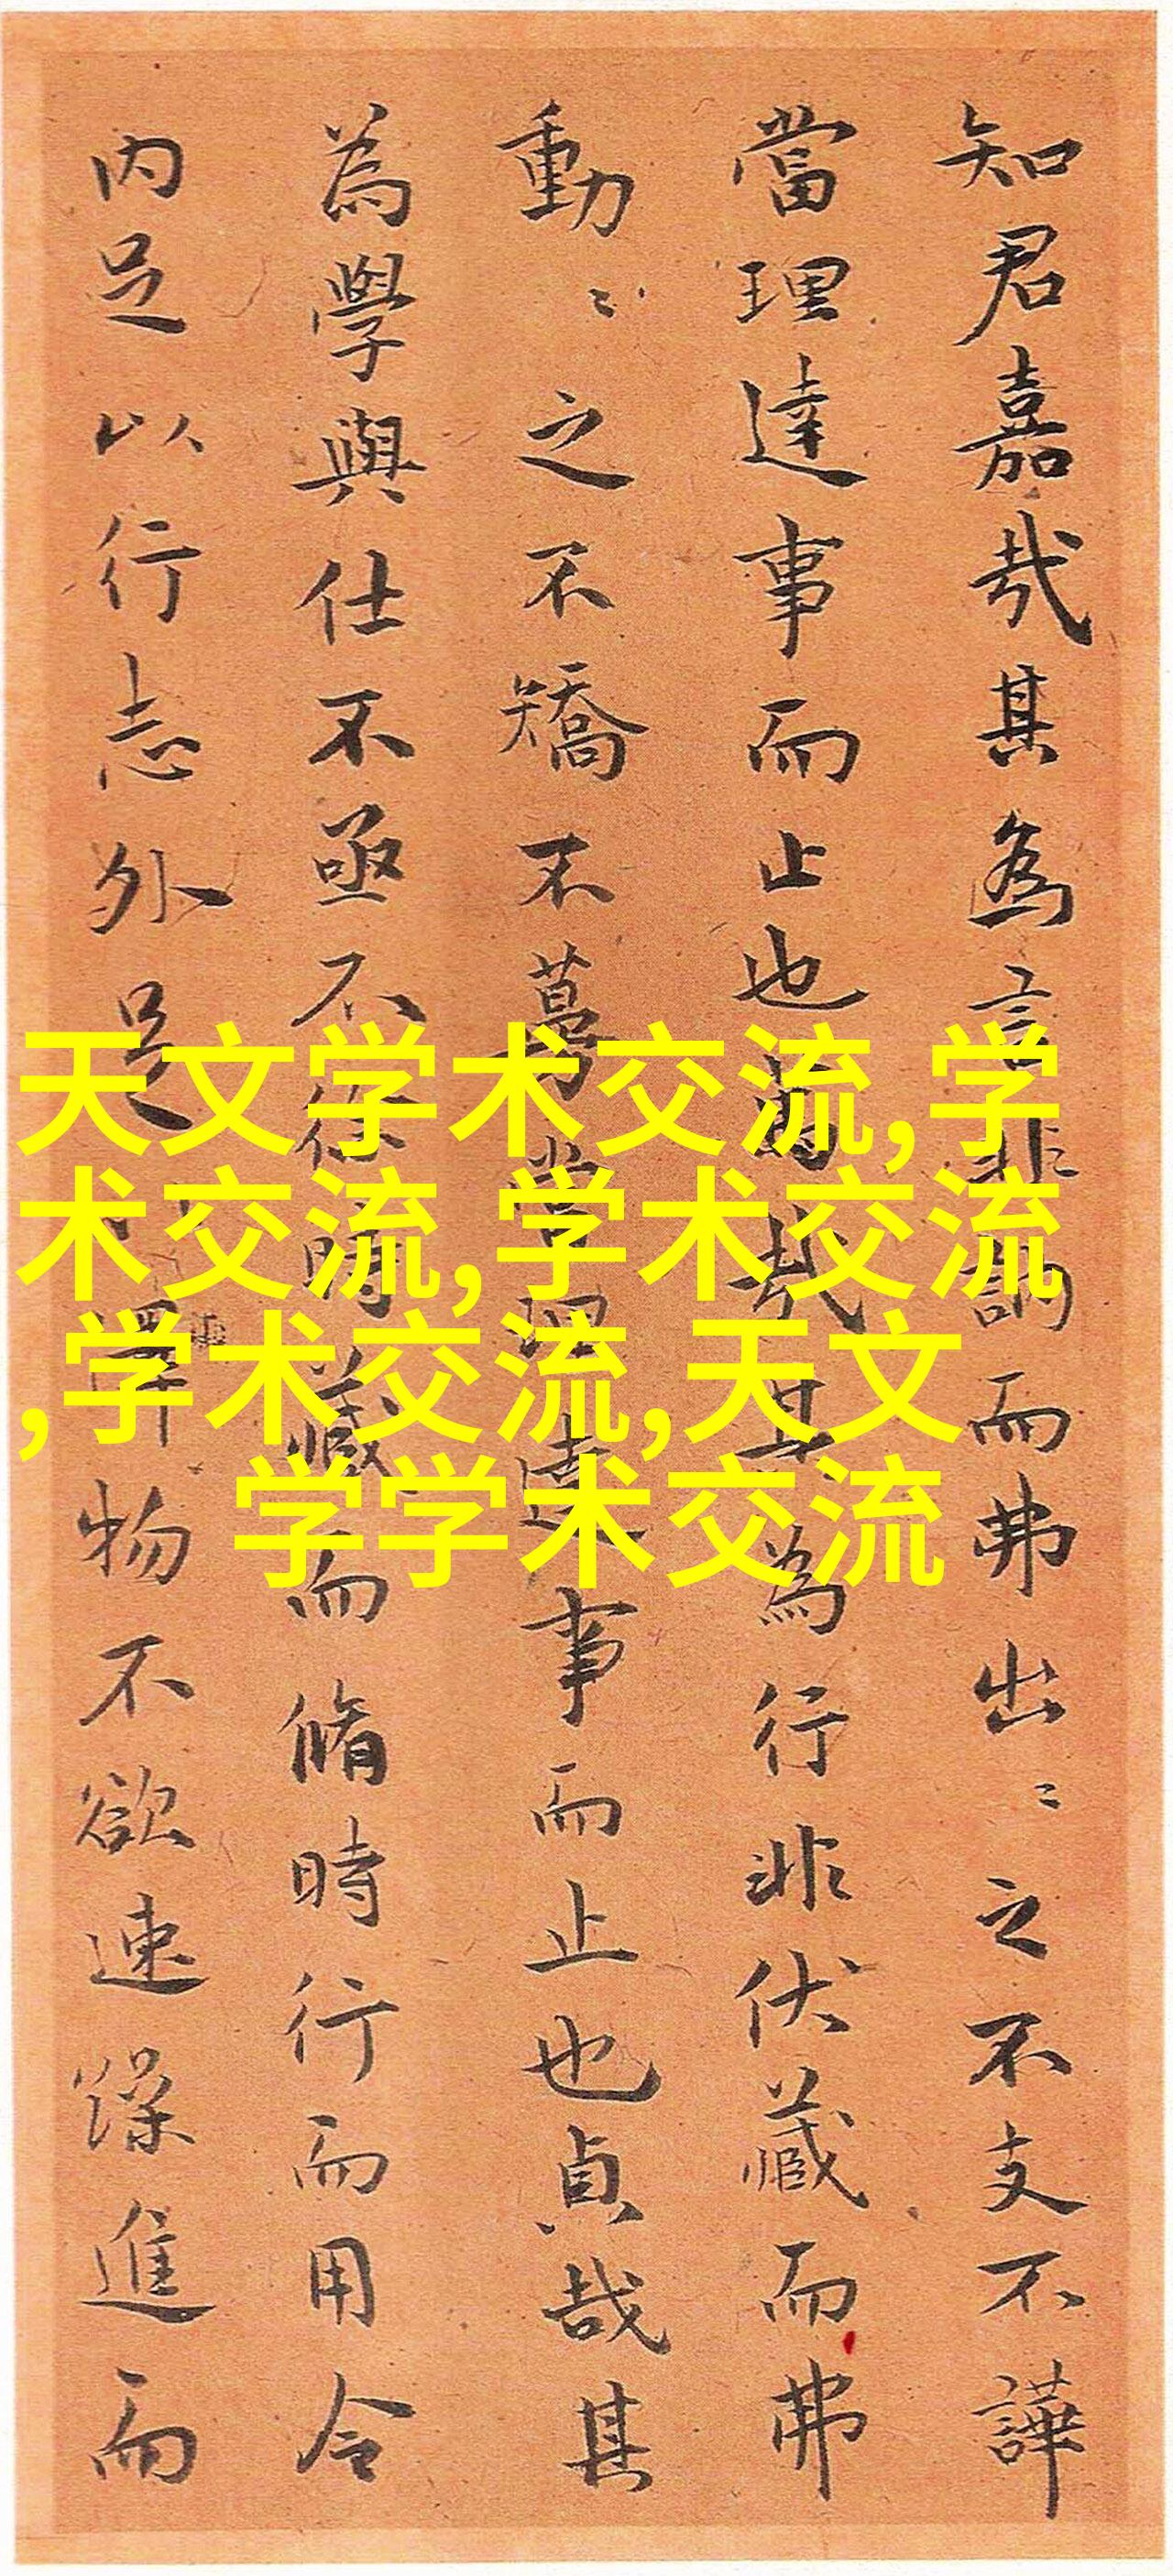 知君嘉哉其為言非訥而弗出〻之不支不譁
當理達事而止也嘉哉其為行非伏藏而弗
動〻之不矯不當理達事而止也貞哉其
為學與仕不亟不徐時藏而脩時行而用令
内足以行志外足澤物不欲速躁進而
天文学术交流,学
术交流,学术交流
,学术交流,天文
学学术交流